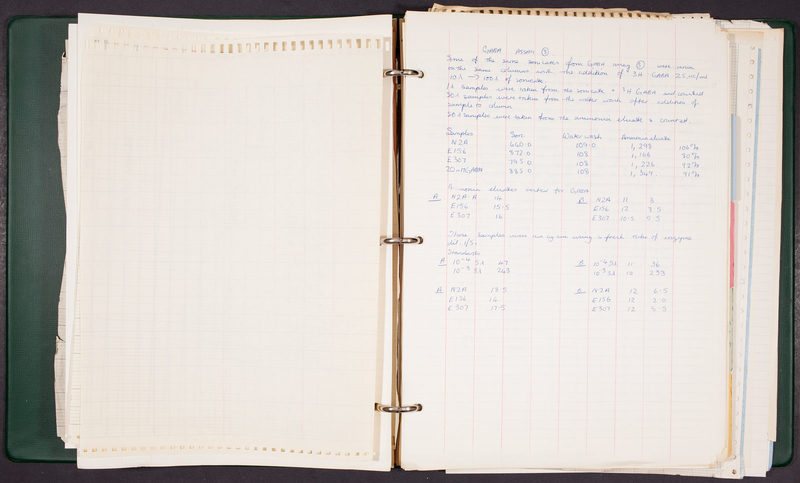 GABA ASSAY ③
Some of the same sonicates from GABA assay ② were
on the same columns with the addition of ³H GABA
10λ → 100λ of sonicate.
1λ samples were taken from the sonicate + ³H GABA and counted
50λ samples were taken from the water wash after addition of
sample to column
50λ samples were taken from the ammonia eluate & counted.
Samples Son. Water wash Ammonia eluate
N2A 660.0 109.0 1,298 106%
E156 872.0 108 1,166 80%
E307 795.0 108 1,226 92%
885.0 108 1,347. 91%
eluates for GABA
A N2A A 14 B N2A 11 8
E156 15.5 E156 12 8.5
E307 16 E307 10.5 5.5
These samples were run again using a fresh tube of enzyme
dil. 1/5.
Standards
A 10⁻⁴ 5λ 47 B 10⁻⁴ 5λ 11 36
10⁻³ 5λ 243 10⁻³ 5λ 10 233
A N2A 18.5 B N2A 12 6.5
E156 14 E156 12 2.0
E307 17.5 E307 12 5.5